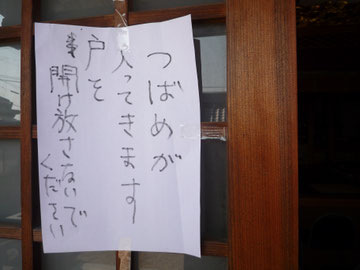 つばめが
入ってきます
戸を
開け放さないで
ください